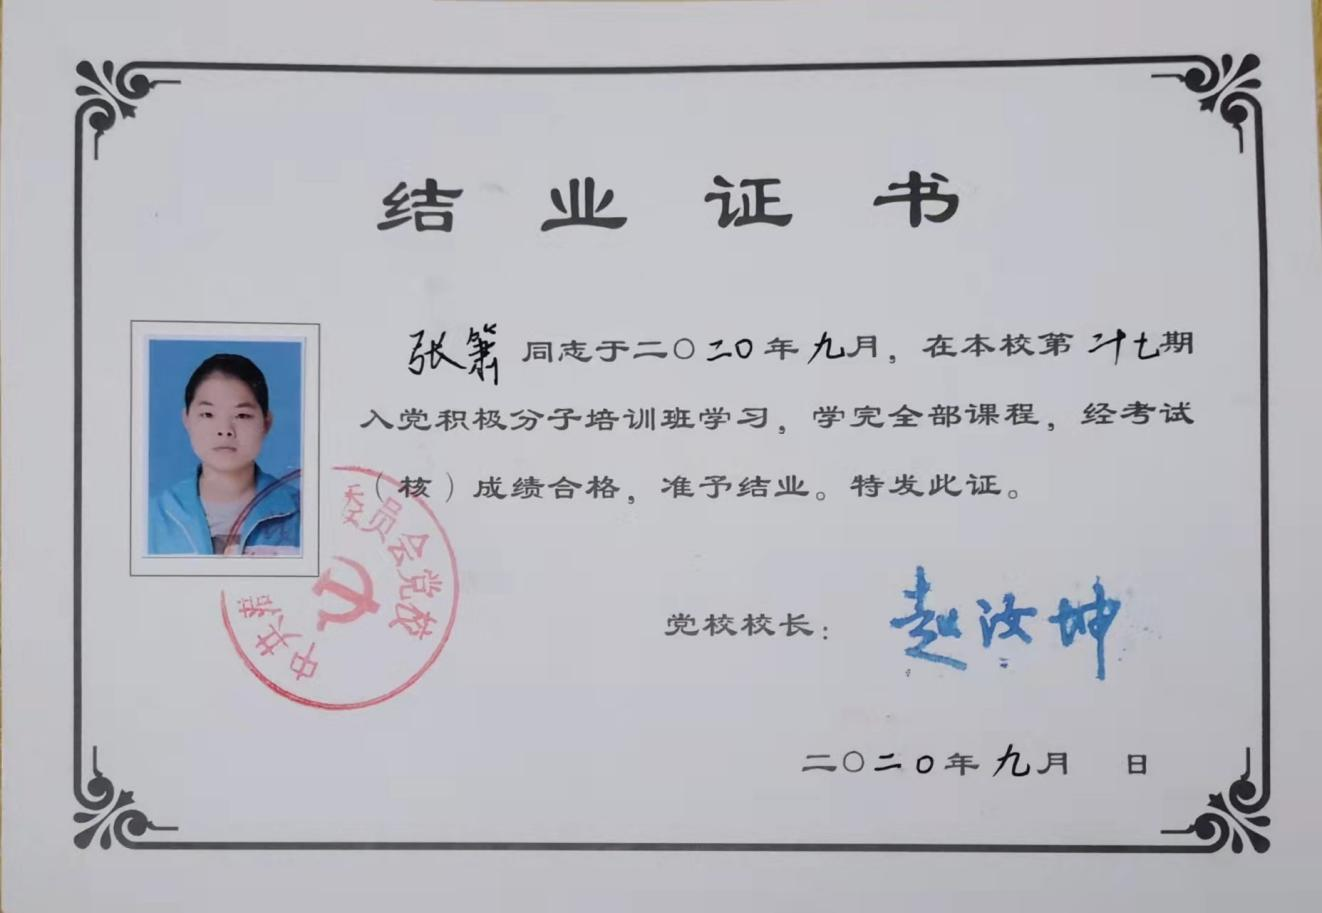 结业证书
张箫同志于二〇二〇年九月，在本校第二十七期
入党积极分子培训班学习，学完全部课程，经考试
（核）成绩合格，准予结业。特发此证。
中共
委员会党校
党校校长：赵汝坤
二〇二〇年九月 日